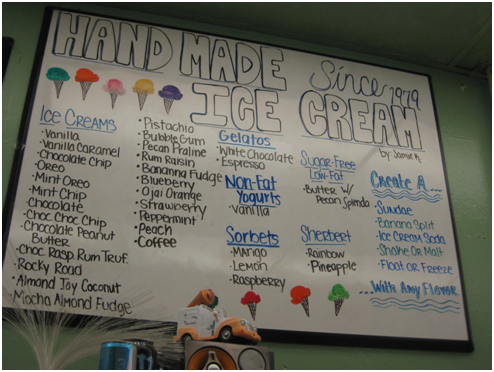 HAND MADE
ICE CREAM
Since 1979
by Jamie K
Ice Creams
•Vanilla
•Vanilla Caramel
•Chocolate Chip
•Oreo
•Mint Oreo
•Mint Chip
•Chocolate
•Choc Choc Chip
•Chocolate Peanut
Butter
•Choc Rasp Rum Truf.
•Rocky Road
•Almond Joy Coconut
•Mocha Almond Fudge
•Pistachio
•Bubble Gum
•Pecan Praline
•Rum Raisin
•Bananna Fudge
•Blueberry
•Ojai Orange
•Strawberry
•Peppermint
•Peach
•Coffee
Gelatos
•White Chocolate
•Espresso
Non-Fat
Yogurts
•Vanilla
Sorbets
•Mango
•Lemon
•Raspberry
Sugar-Free
Low-Fat
•Butter W/
Pecan Splenda
Sherbert
•Rainbow
•Pineapple
Create A...
•Sundae
•Banana Split
•Ice Cream Soda
•Shake Or Malt
•Float or Freeze
...With Any Flavor